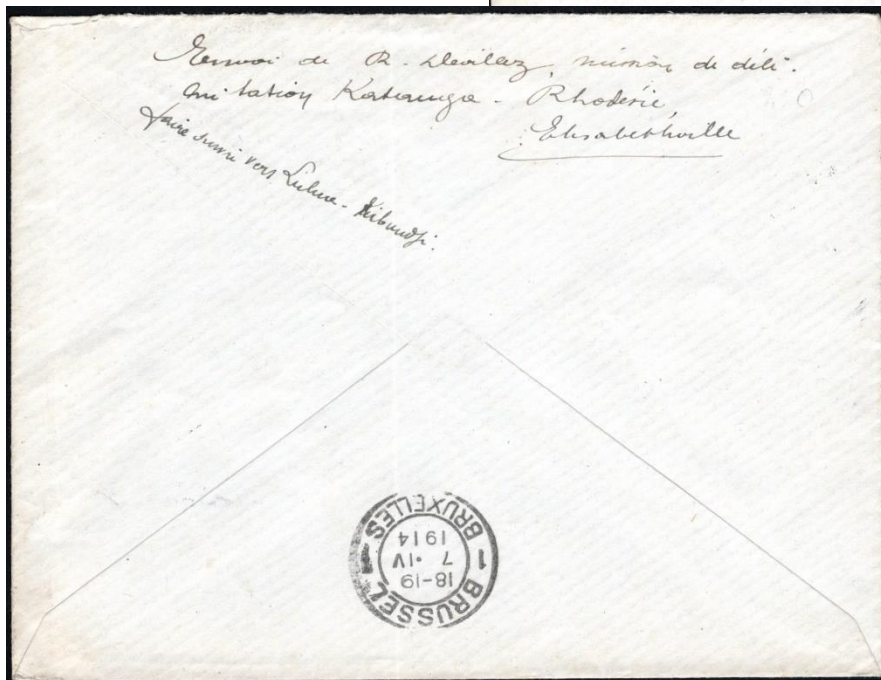 Renvoi de R. Devilez, mission de déli-
mitation Katanga - Rhodésie
Elisabethville
faire suivre vers Lulua - Kibundji.
1 BRUSSEL
18-19
7 · IV
1914
BRUXELLES